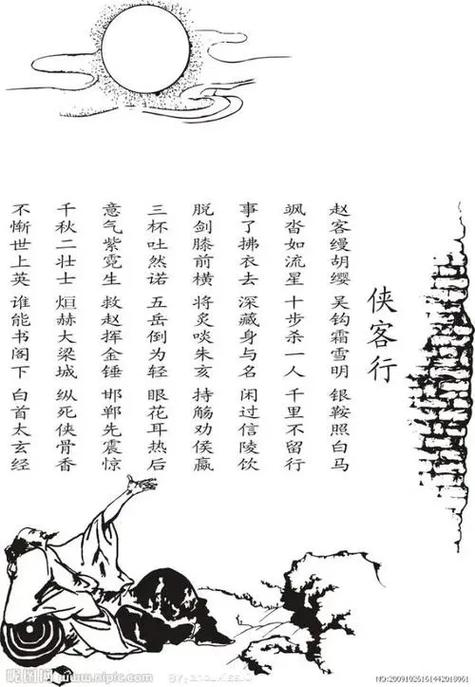 侠客行
赵客缦胡缨 吴钩霜雪明 银鞍照白马
飒沓如流星 十步杀一人 千里不留行
事了拂衣去 深藏身与名 闲过信陵饮
脱剑膝前横 将炙啖朱亥 持觞劝侯嬴
三杯吐然诺 五岳倒为轻 眼花耳热后
意气紫霓生 救赵挥金锤 邯郸先震惊
千秋二壮士 烜赫大梁城 纵死侠骨香
不惭世上英 谁能书阁下 白首太玄经
昵图网 www.nipic.com
BY: